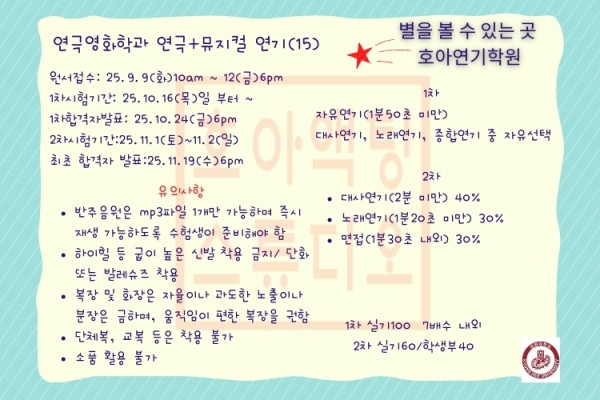 별을 볼 수 있는 곳
호아연기학원
연극영화학과 연극+뮤지컬 연기(15)
원서접수: 25.9.9(화)10am ~ 12(금)6pm
1차시험기간: 25.10.16(목)일 부터 ~
1차합격자발표: 25.10.24(금)6pm
2차시험기간:25.11.1(토)~11.2(일)
최초 합격자 발표:25.11.19(수)6pm
유의사항
• 반주음원은 mp3파일 1개만 가능하며 즉시
재생 가능하도록 수험생이 준비해야 함
• 하이힐 등 굽이 높은 신발 착용 금지/ 단화
또는 발레슈즈 착용
• 복장 및 화장은 자율이나 과도한 노출이나
분장은 금하며, 움직임이 편한 복장을 권함
• 단체복, 교복 등은 착용 불가
• 소품 활용 불가
1차
자유연기(1분50초 미만)
대사연기, 노래연기, 종합연기 중 자유선택
2차
• 대사연기(2분 미만) 40%
• 노래연기(1분20초 미만) 30%
• 면접(1분30초 내외) 30%
1차 실기100 7배수 내외
2차 실기60/학생부40
호아액팅
스튜디오